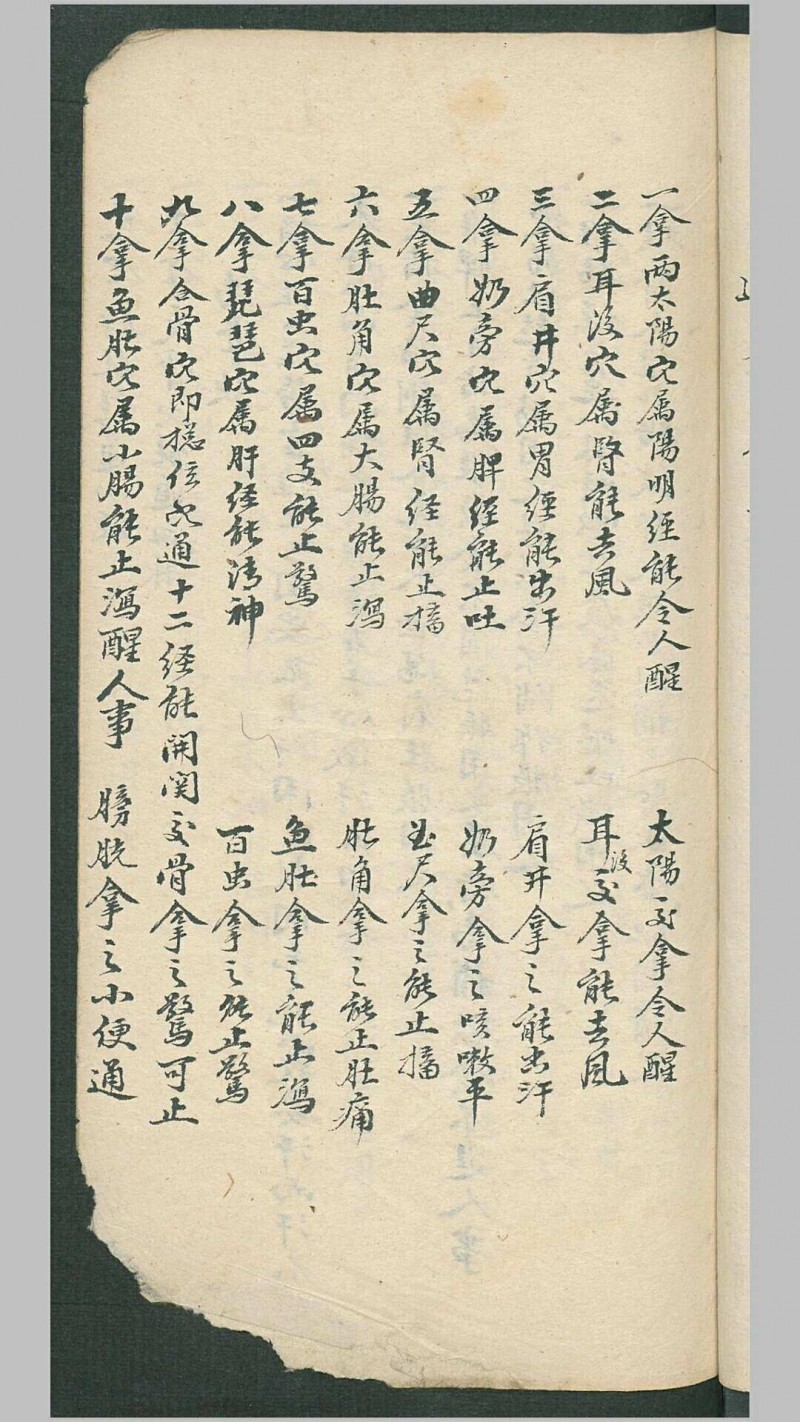 一拿兩太陽穴属陽明经能令人醒 太陽一或拿令人醒
二拿耳後穴属腎能去風 耳後或拿能去風
三拿肩井穴属胃经能出汗 肩井拿之能出汗
四拿奶旁穴属脾经能止吐 奶旁拿之咳嗽平
五拿曲尺穴属腎经能止搐 曲尺拿之能止搐
六拿肚角穴属大腸能止瀉 肚角拿之能止肚痛
七拿百虫穴属四支能止驚 魚肚拿之能止瀉
八拿琵琶穴属肝经能清神 百虫拿之能止驚
九拿合骨穴即穴通十二经能開関 骨拿之驚可止
十拿魚肚穴属小腸能止瀉醒人事 膀胱拿之小便通